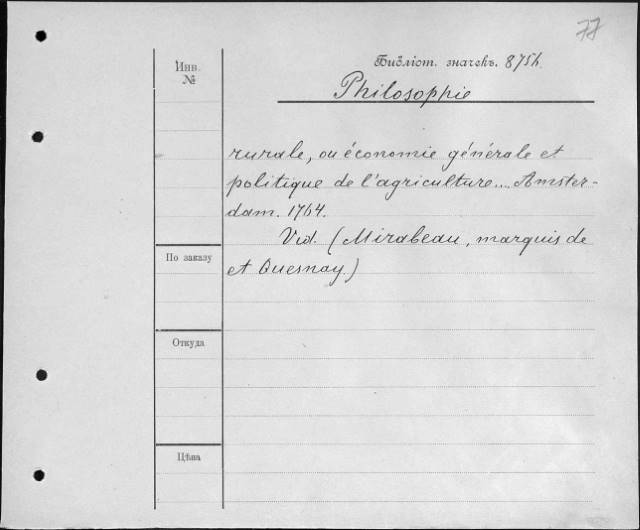 77
Инв. №
Библіот. значекъ. 875h.
Philosophie
rurale, ou économie générale et
politique de l'agriculture.... Amster-
dam. 1764.
Vid. (Mirabeau, marquis de
et Quesnay.)
По заказу
Откуда
Цѣна